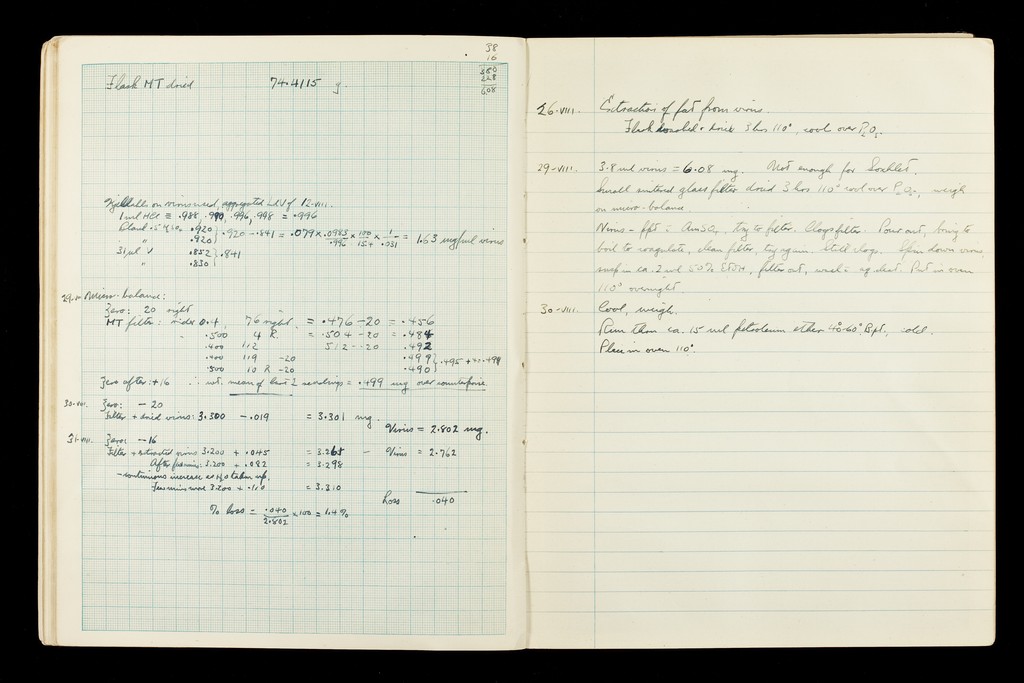 38
16
380
228
608
Flask MT dried 74.4115 g.
Kjeldahls on virus used, aggregated LV of 12-VIII.
1 ml HCl ≡ .988, .990, .996, .998 = .996
Blank .920
" .920 } .920 - .841 = .079 × .0983/.996 × 100/154 × 1/.031 = 1.63 mg/ml virus
31 µl V .852 } .841
" .830
29-VIII Micro-balance:
Zero: 20 right
MT filter: rider 0.4, 76 right = .476 - 20 = .456
.500 4 R. = .504 - 20 = .484
.400 112 512 - 20 .492
.400 119 -20 .499
.500 10 R -20 .490
Zero after: +16 ∴ wt. mean of last 2 readings = .499 mg over counterpoise.
30-VIII. Zero: - 20
Filter + dried virus: 3.300 - .019 = 3.301 mg.
Virus = 2.802 mg.
31-VIII. Zero: - 16
Filter + extracted virus 3.200 + .045 = 3.265 - Virus = 2.762
After 3.200 + .082 = 3.298
- continuous increase as H2O taken up.
more 3.200 + .110 = 3.310
Loss .040
% loss = .040/2.802 × 100 = 1.4%
26-VIII. Extraction of fat from virus.
Flask + dried 3 hrs 110°, cool over P2O5.
29-VIII. 3.8 ml virus = 6.08 mg. Not enough for Soxhlet.
Small sintered glass filter dried 3 hrs 110° cool over P2O5, weigh
on micro-balance.
Virus - ppt c AmSO4, try to filter. Clogs filter. Pour out, bring to
boil to coagulate, clean filter, try again. Still clogs. Spin down virus,
susp in ca. 2 ml 50% EtOH, filter out, wash c aq. dest. Put in oven
110° overnight.
30-VIII. Cool, weigh.
Run thru ca. 15 ml petroleum ether 40-60° Bpt., cold.
Place in oven 110°.